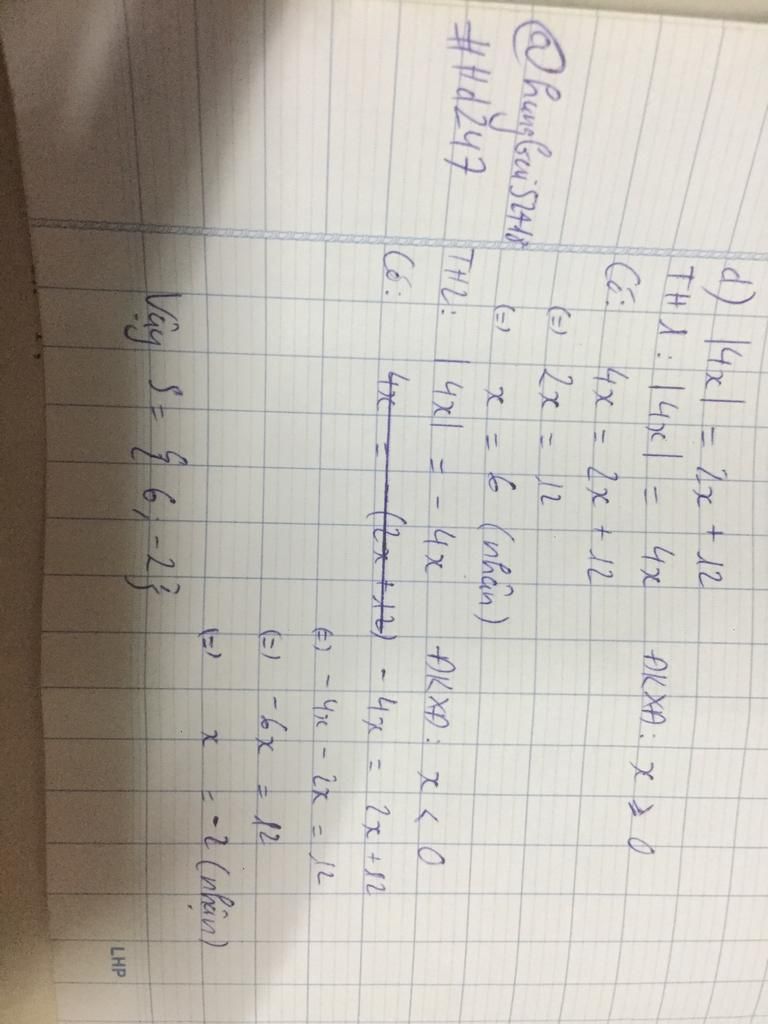 @hungbui52418
#Hd247
d) |4x| = 2x + 12
TH1: |4x| = 4x ĐKXĐ: x ≥ 0
Có: 4x = 2x + 12
(=) 2x = 12
(=) x = 6 (nhận)
TH2: |4x| = - 4x ĐKXĐ: x < 0
Có: 4x = - (2x + 12) - 4x = 2x + 12
(=) - 4x - 2x = 12
(=) - 6x = 12
(=) x = - 2 (nhận)
Vậy S = { 6; -2 }
LHP